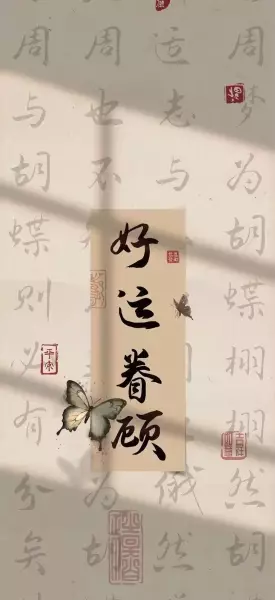 好运眷顾
周梦为胡蝶栩栩然胡
适志与
俄然
周也不
为胡
周与胡蝶则必有分矣
平安